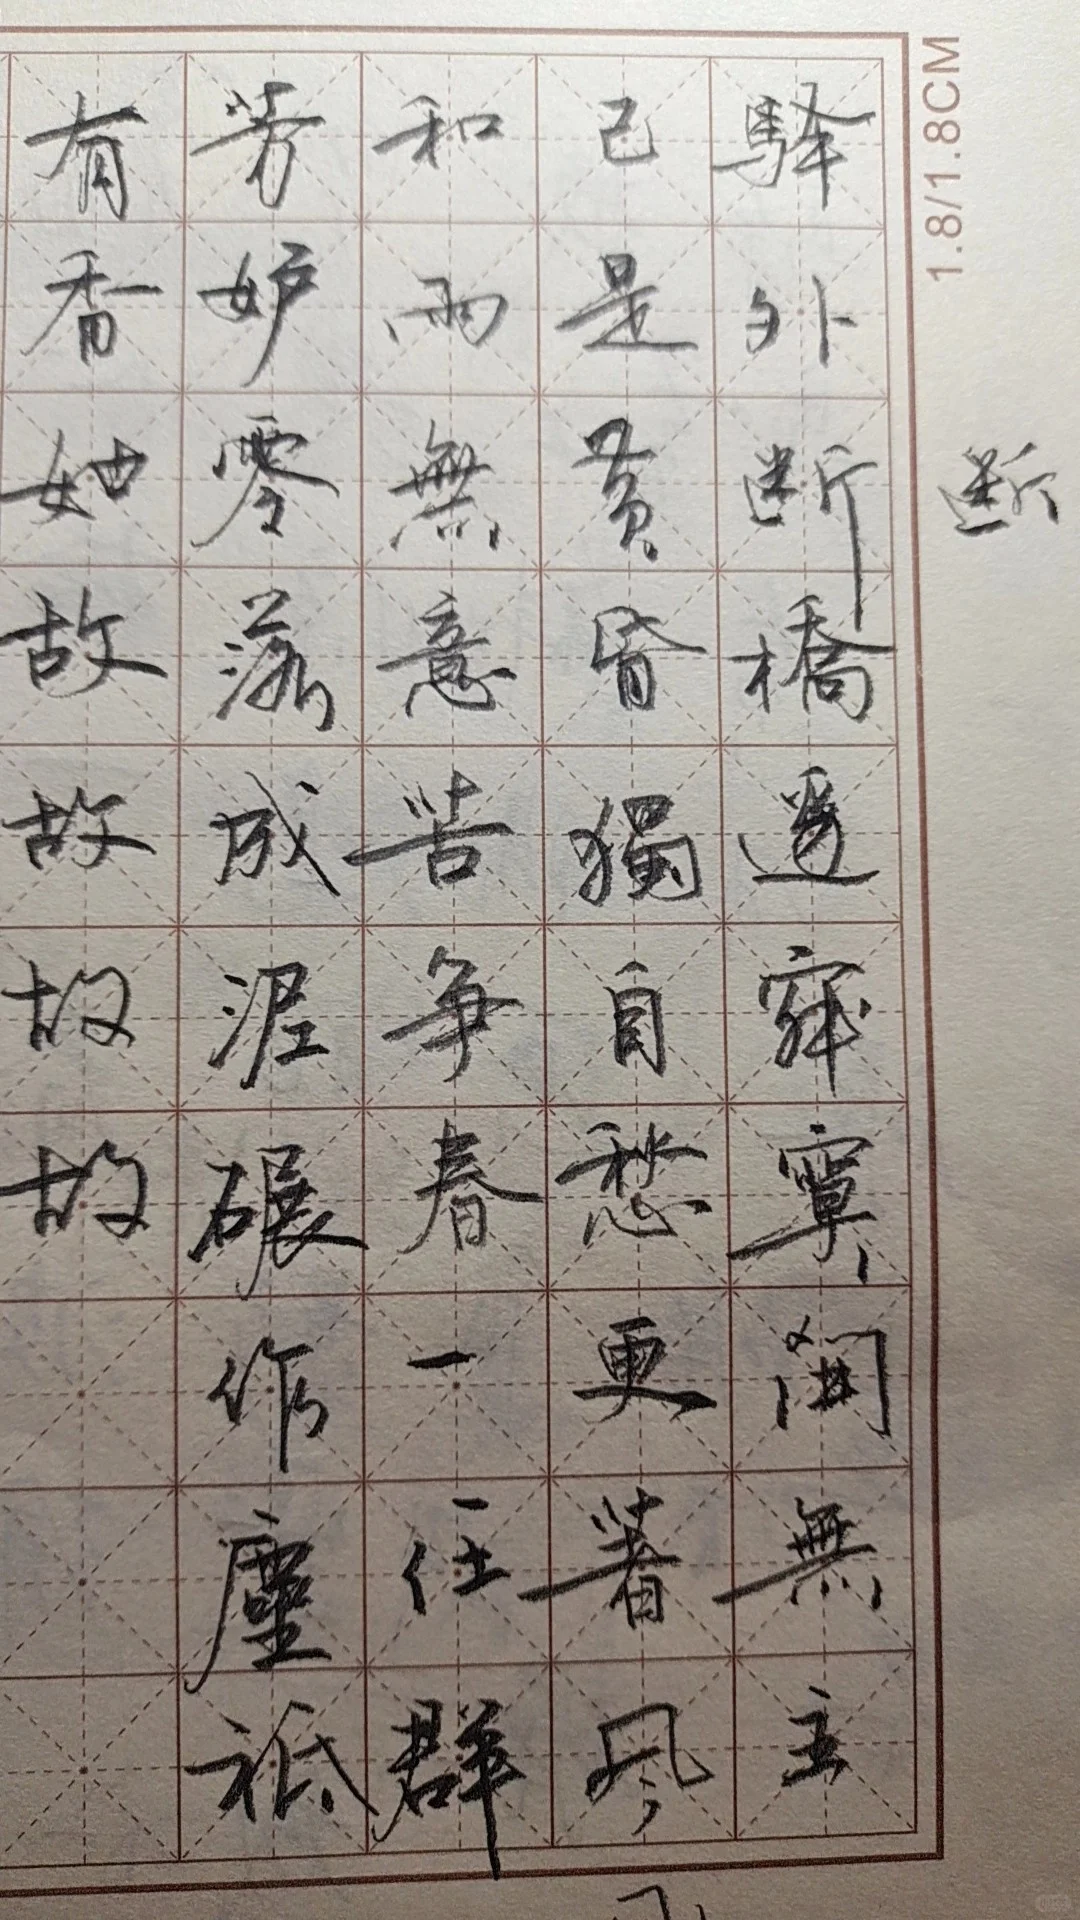 驛外断橋邊寂寞開無主
已是黃昏獨自愁更著風
和雨無意苦争春一任群
芳妒零落成泥碾作塵祇
有香如故故故故
断
1.8/1.8CM